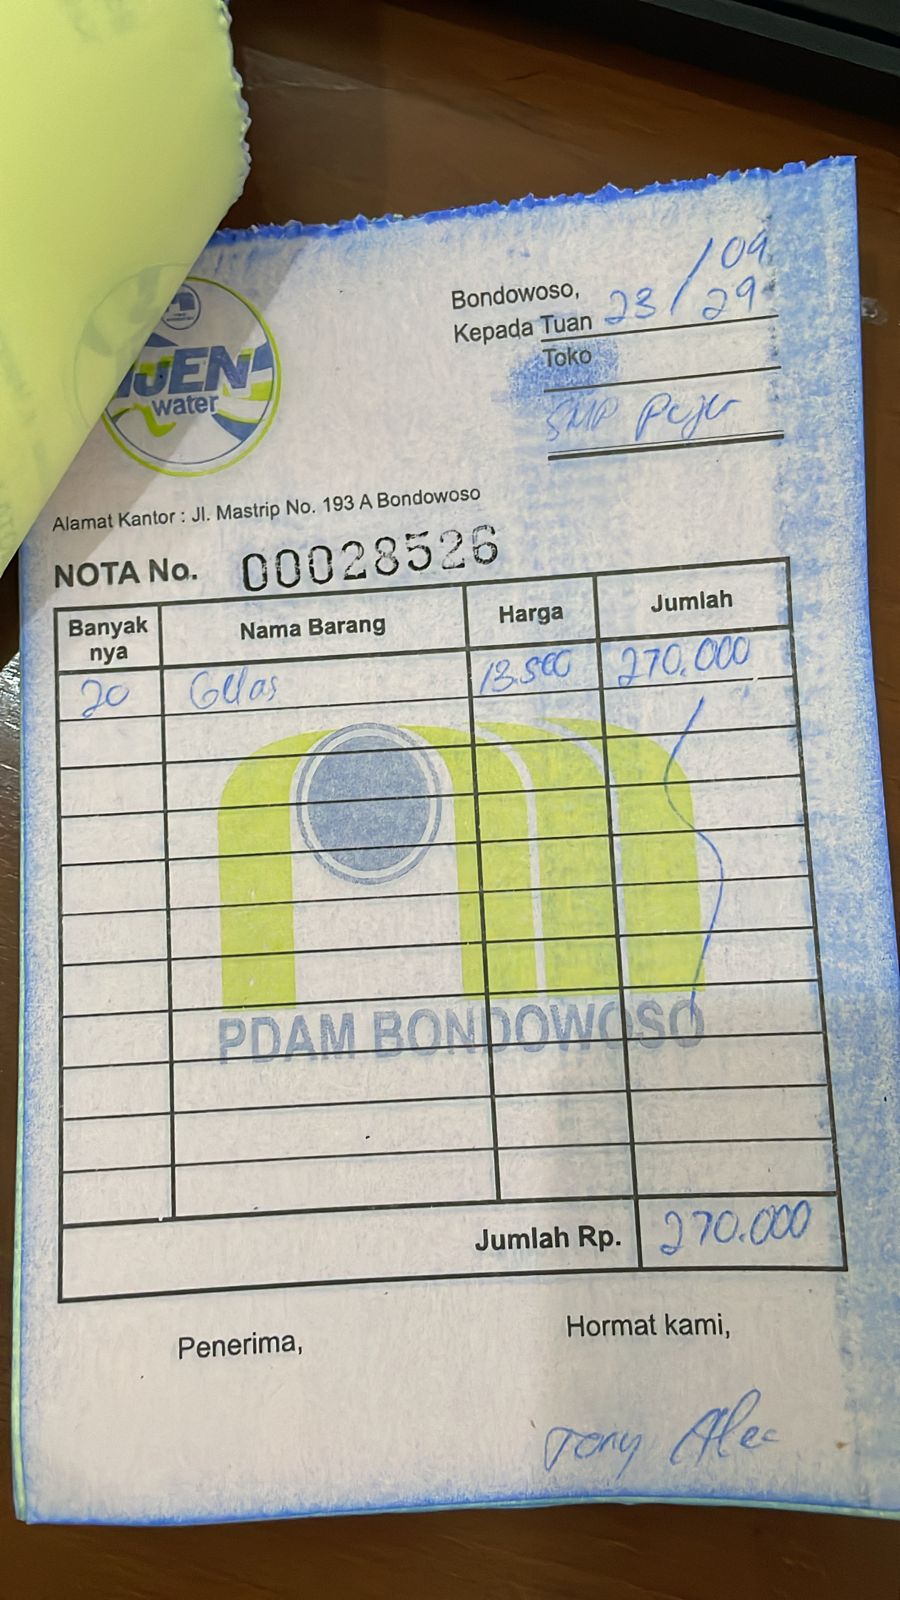 IJEN
water
Bondowoso, 23/09
29
Kepada Tuan
Toko
SMP
Alamat Kantor : Jl. Mastrip No. 193 A Bondowoso
NOTA No. 00028526
Banyak nya Nama Barang Harga Jumlah
20 Gelas 13.500 270.000
PDAM BONDOWOSO
Jumlah Rp. 270.000
Penerima, Hormat kami,
Tony